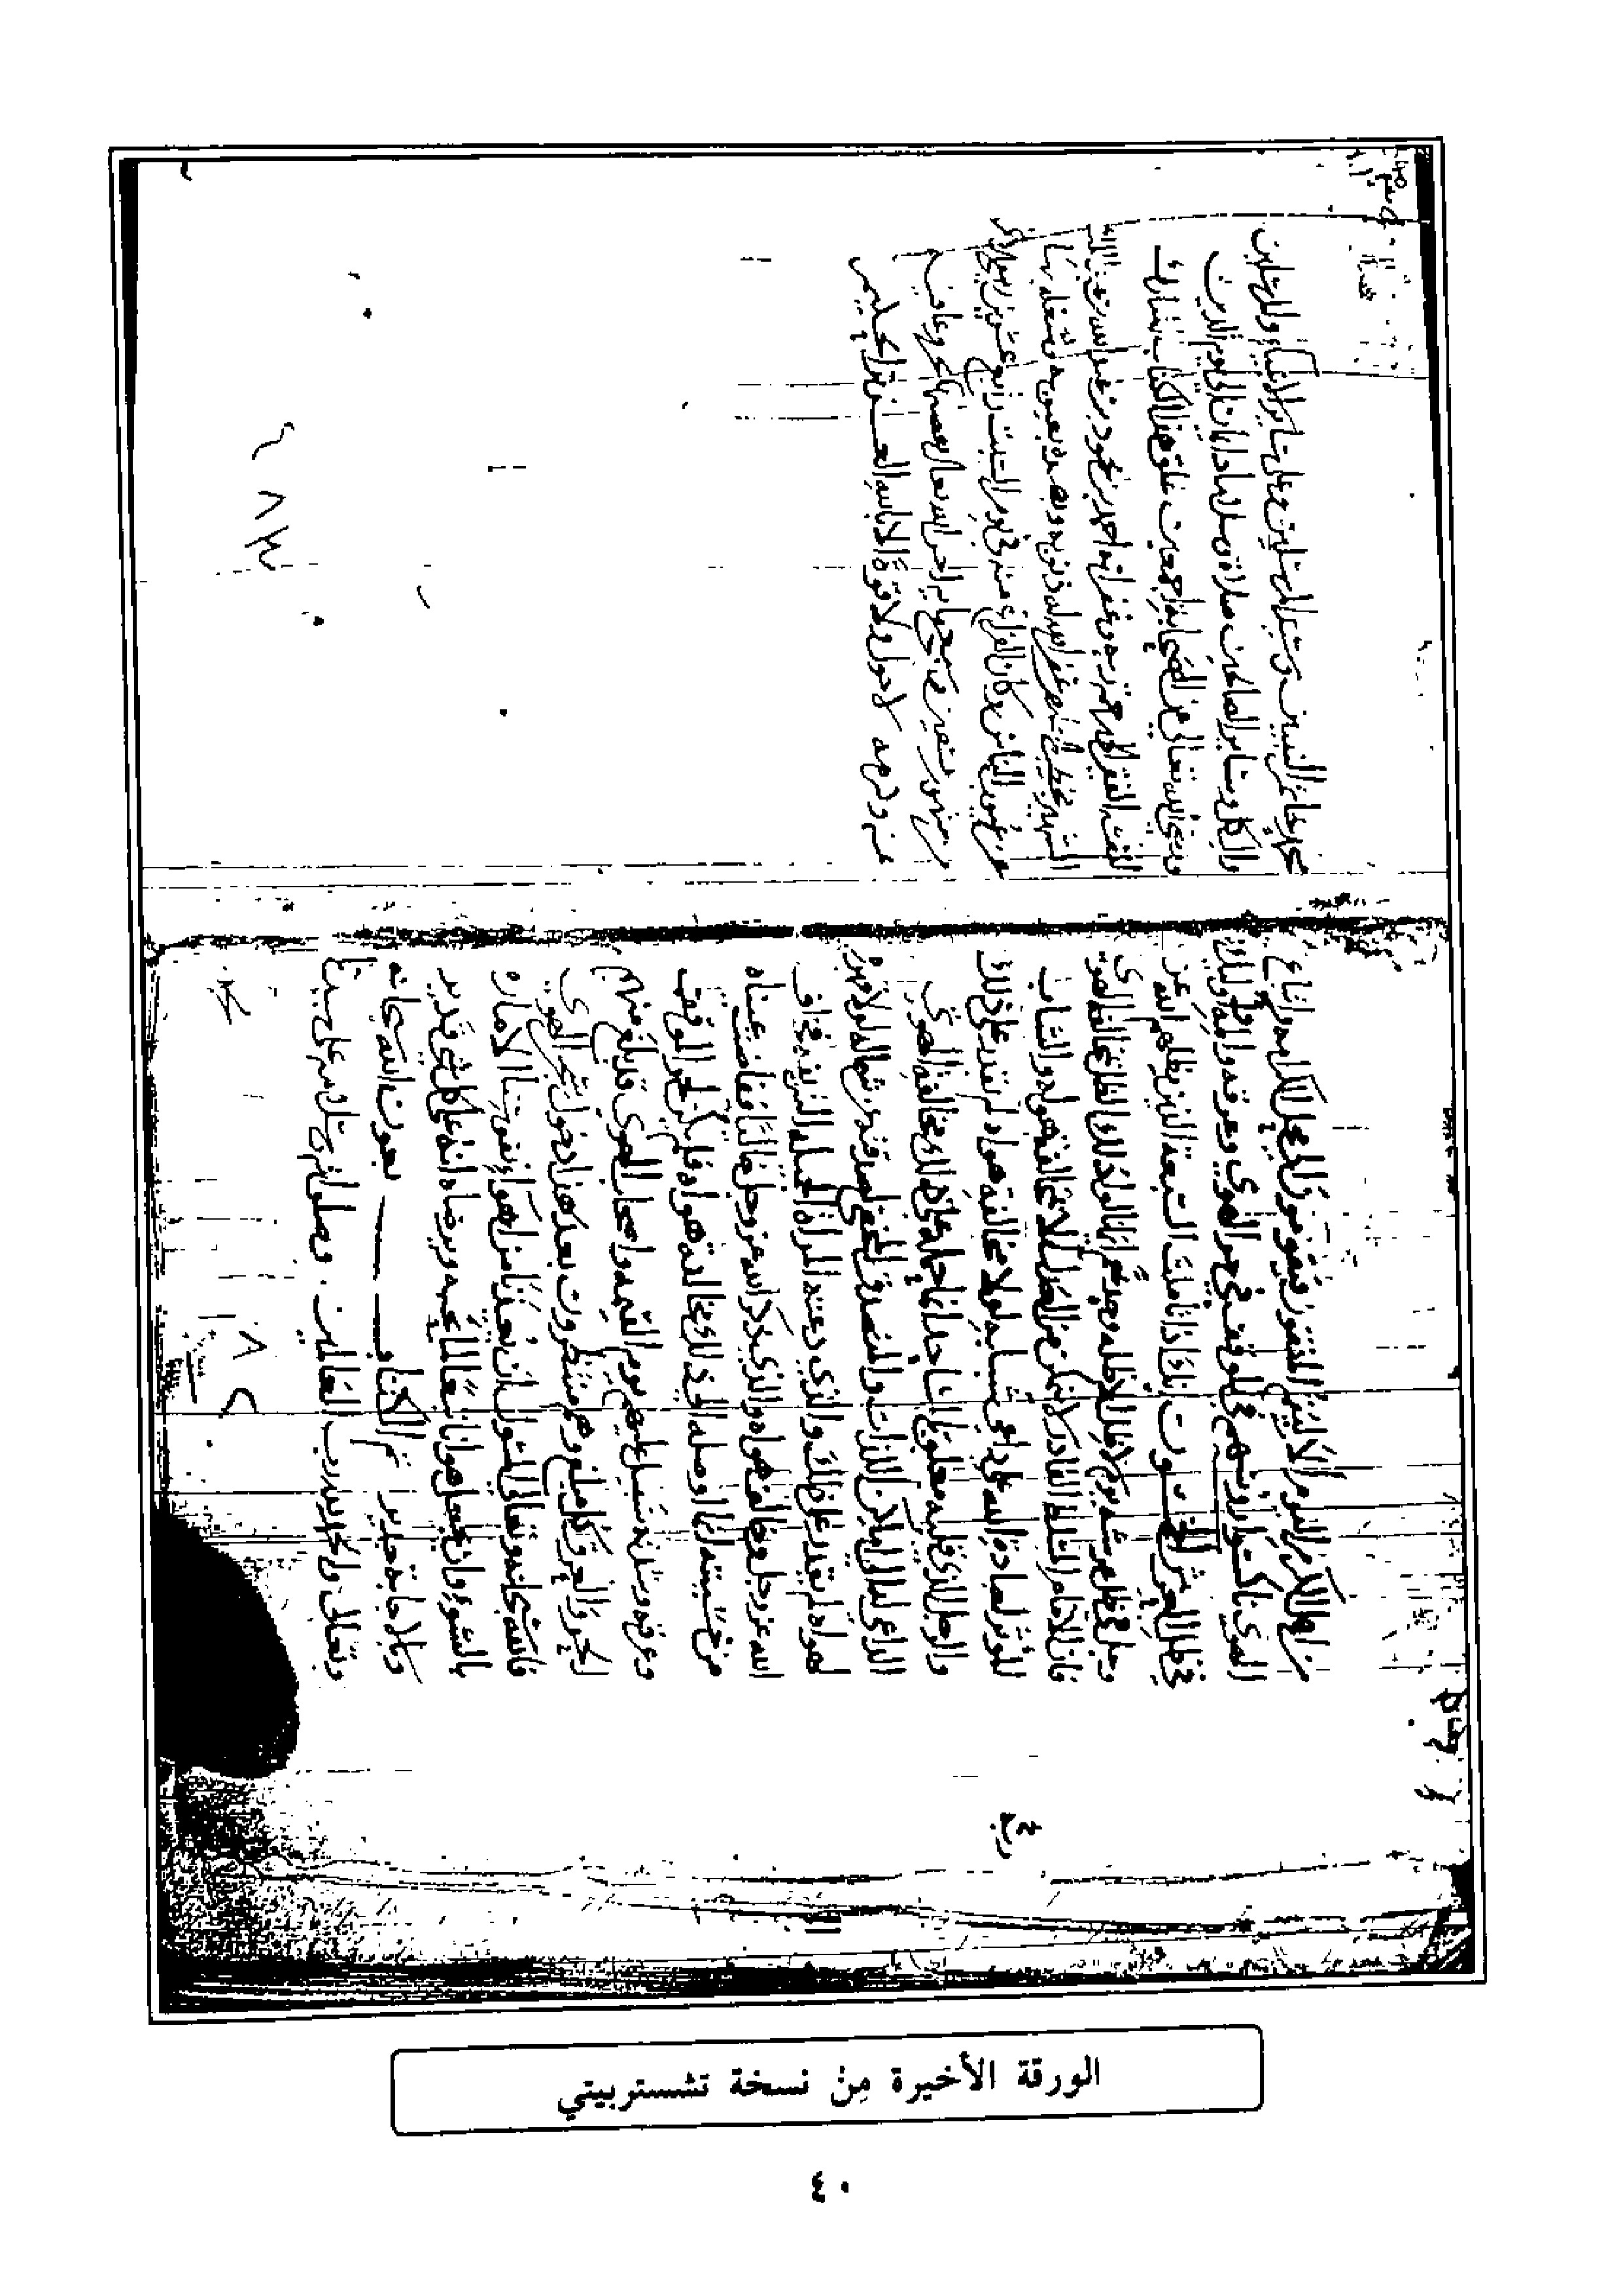 من اهل الكرم اليوم الا ليقم المتقون فيقومون الى محل الكرامه واتباع
الهوى ناكسوا رؤسهم في الموقف في حر الهوى وعرقه والمه واوليك
في ظل العرش تأملت السبعة الذين يظلهم الله عز
وجل في ظل عرشه يوم لا ظل الا ظله وجدتهم انما نالوا ذلك الظل بمخالفة الهوى
فان الامام المسلط القادر لا يتمكن من العدل الا بمخالفة هواه والشاب
المؤثر لعبادة الله على داعي شبابه لولا مخالفة هواه لم يقدر على ذلك
والرجل الذي قلبه معلق بالمساجد انما حمله على ذلك مخالفة الهوى
الداعي له الى اماكن اللذات والمتصدق المخفي لصدقته عن شماله لولا قهره
لهواه لم يقدر على ذلك والذي دعته المراة الجميلة الشريفة فخاف
الله عز وجل وخالف هواه والذي ذكر الله عز وجل خاليا ففاضت عيناه
من خشيته انما اوصله الى ذلك مخالفة هواه فلم يكن لحر الموقف
وعرقه وشدته سبيل عليهم يوم القيمه واصحاب الهوى قد بلغ منهم
الحر والعرق كل مبلغ وهم منتظرون بعد هذا دخول سجن الهوى
فالله سبحانه وتعالى المسئول ان يعيذنا من اهواء نفوسنا الاماره
بالسوء وان يجعل هوانا تبعا لما يحبه ويرضاه انه على كل شي قدير
وبالاجابة جدير تم الكتاب بعون الله سبحانه
وتعالى والحمد لله رب العالمين وصلواته وسلامه على سيدنا
محمد خاتم النبيين وسيد المرسلين وعلى ساير الانبياء والمرسلين
وال كل وساير الصالحين صلاة وسلاما دايمان الى يوم الدين
ورضي الله تعالى عن الصحابة اجمعين علق هذا الكتاب المبارك
لنفسه الفقير الى رحمة ربه وغفرانه احمد بن محمود بن
الشهير بخطيب غفر الله له ذنوبه وبصره بعيوب نفسه
عن عيوب الناس وكان الفراغ منه في يوم السبت رابع عشرين ربيع الاخر
منه وكرمه لا حول ولا قوة الا بالله العزيز الحكيم
الورقة الأخيرة مِنْ نسخة تشستربيتي
٤٠